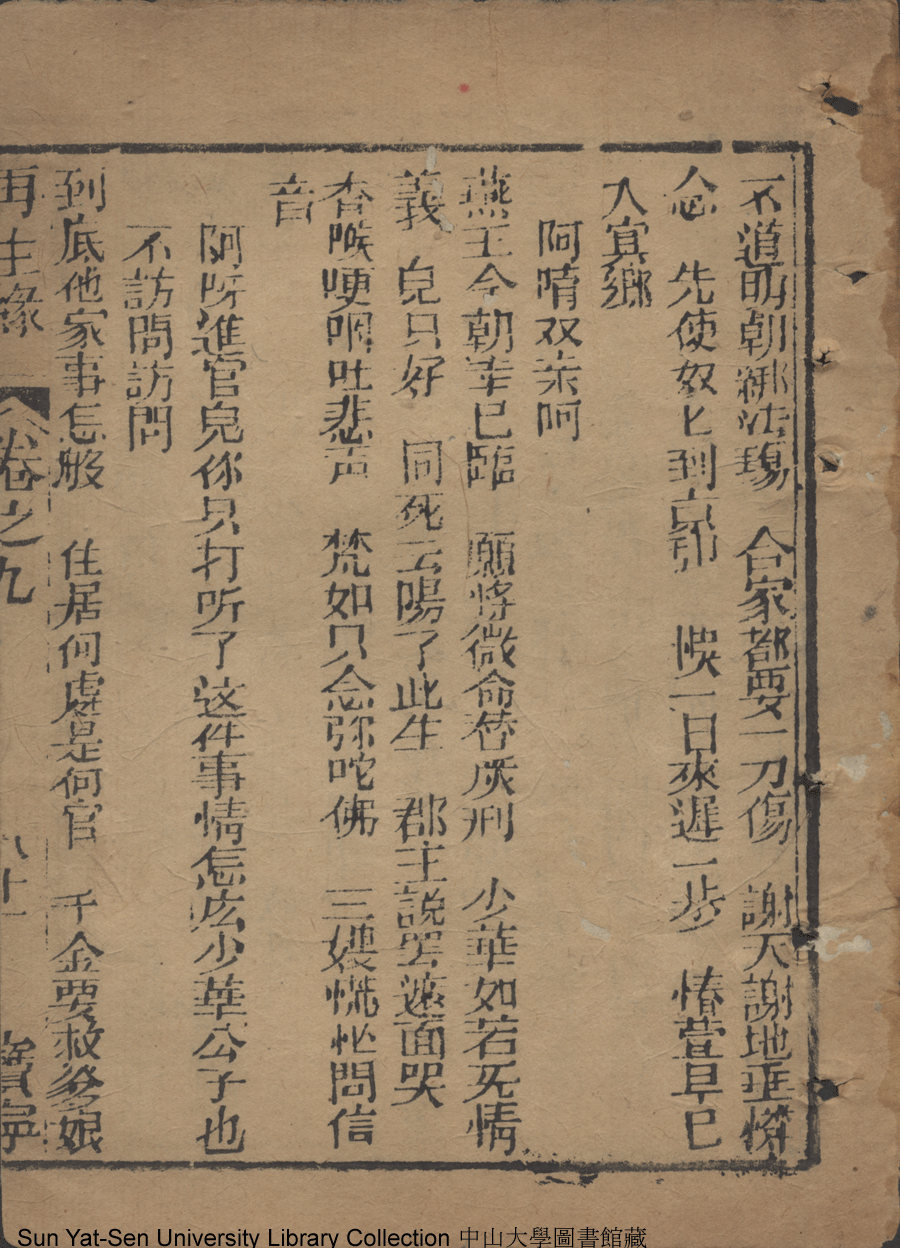 不道明朝綁法塲　合家都要一刀傷　謝天謝地垂憐
念　先使奴匕到京都　悞一日來遲一步　椿萱早已
入冥鄉
阿唷双亲阿
燕王今朝幸已臨　願将微命替灰刑　少華如若无情
義　皃只好　同死云陽了此生　郡主説罢遮面哭
杏喉哽咽吐悲声　梵如只念弥陀佛　三嫂慌忙問信
音
阿呀進官皃你只打听了这件事情怎庅少華公子也
不訪問訪問
到底他家事怎般　住居何處是何官　千金要救爹娘
再生緣　卷之九　八十一　寶寧
Sun Yat-Sen University Library Collection 中山大學圖書館藏